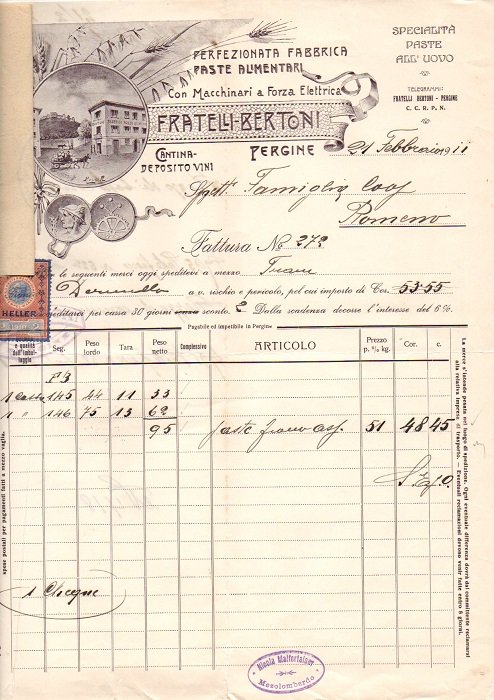 PERFEZIONATA FABBRICA
PASTE ALIMENTARI
Con Macchinari a Forza Elettrica
FRATELLI-BERTONI
CANTINA-
DEPOSITO VINI
PERGINE
SPECIALITÀ
PASTE
ALL' UOVO
TELEGRAMMI:
FRATELLI BERTONI - PERGINE
C. C. R. P. N.
21 Febbraio 911
Spett. Famiglia Coop
Romeno
Fattura No 272
le seguenti merci oggi speditevi a mezzo Tram
Dermullo a v. rischio e pericolo, pel cui importo di Cor. 53-55
per cassa 30 giorni sconto. E Dalla scadenza decorse l'interesse del 6%.
Pagabile ed impetibile in Pergine
HELLER
1910
e qualità dell'imballaggio Seg. Peso lordo Tara Peso netto Complessivo ARTICOLO Prezzo p. % kg. Cor. c.
F B
1 145 44 11 33
1 " 146 75 13 62
95 paste 51 48 45
S. E. & O.
1
La merce s'intende posata nel luogo di spedizione. Ogni eventuale differenza dovrà dal committente reclamarsi
alla relativa impresa di trasporto. — Eventuali reclamazioni devono venir fatte entro 8 giorni.
spese postali per pagamenti fatti a mezzo vaglia.
Nicola Malfertainer
Mezolombardo